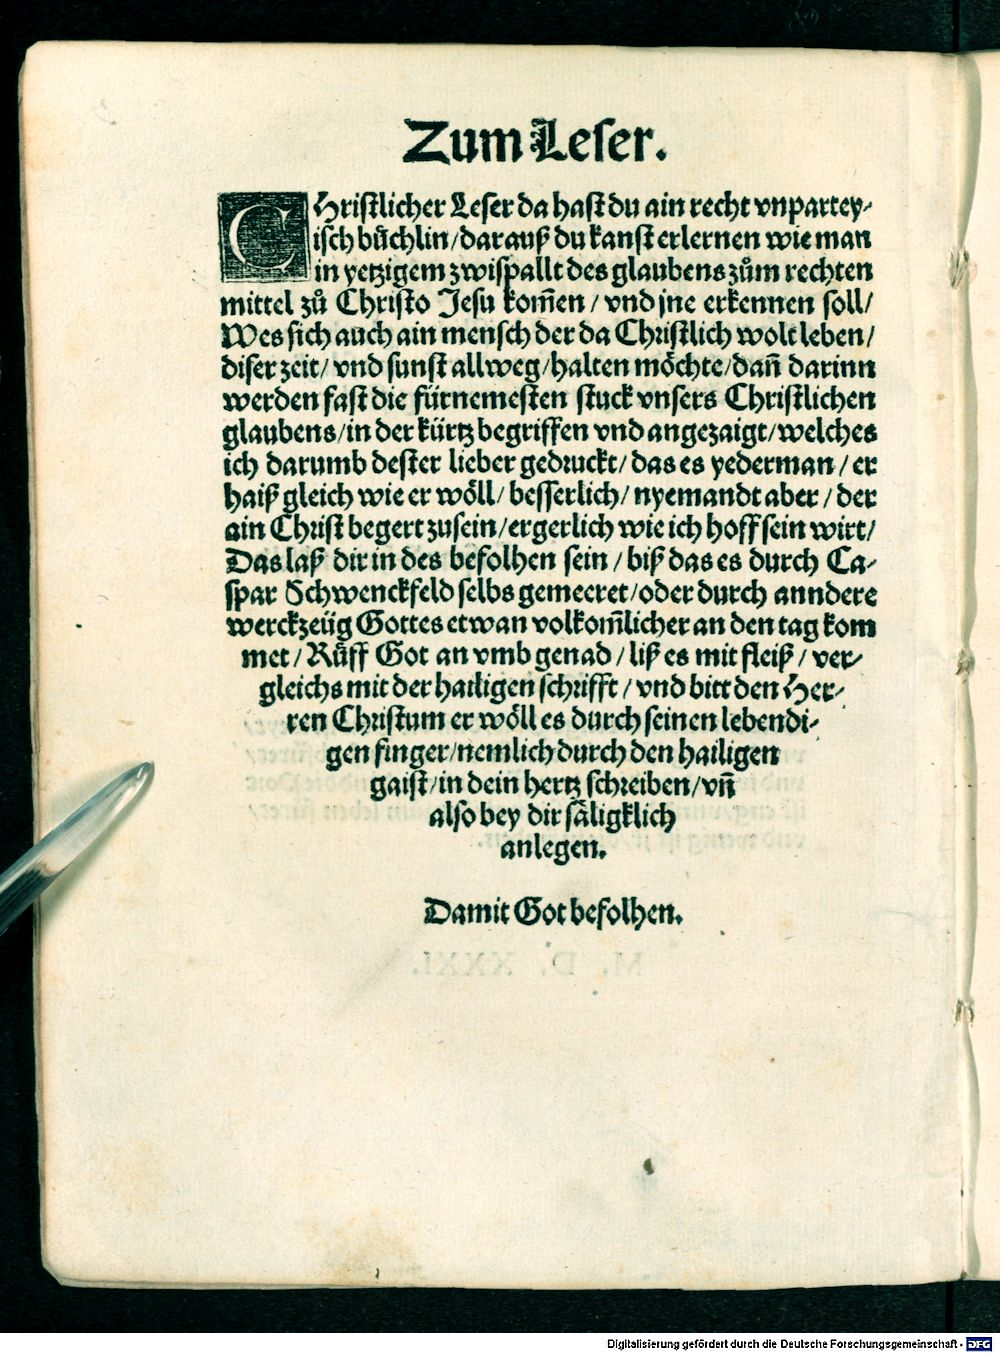 Zum Leser.
CHristlicher Leser da hast du ain recht vnpartey-
isch bůchlin/darauß du kanst erlernen wie man
in yetzigem zwispallt des glaubens zům rechten
mittel zů Christo Jesu kom̄en/ vnd jne erkennen soll/
Wes sich auch ain mensch der da Christlich wolt leben/
diser zeit/ vnd sunst allweg/halten möchte/dan̄ darinn
werden fast die fürnemesten stuck vnsers Christlichen
glaubens/in der kürtz begriffen vnd angezaigt/welches
ich darumb dester lieber gedruckt/das es yederman/er
haiß gleich wie er wöll/besserlich/nyemandt aber/der
ain Christ begert zusein/ergerlich wie ich hoff sein wirt/
Das laß dir in des befolhen sein/biß das es durch Ca-
spar Schwenckfeld selbs gemeeret/oder durch anndere
werckzeüg Gottes etwan volkom̄licher an den tag kom
met/ Růff Got an vmb genad/liß es mit fleiß/ver-
gleichs mit der hailigen schrifft/vnd bitt den Her-
ren Christum er wöll es durch seinen lebendi-
gen finger/nemlich durch den hailigen
gaist/in dein hertz schreiben/vn̄
also bey dir säligklich
anlegen.
Damit Got befolhen.
M. D. XXXI.
Digitalisierung gefördert durch die Deutsche Forschungsgemeinschaft - DFG